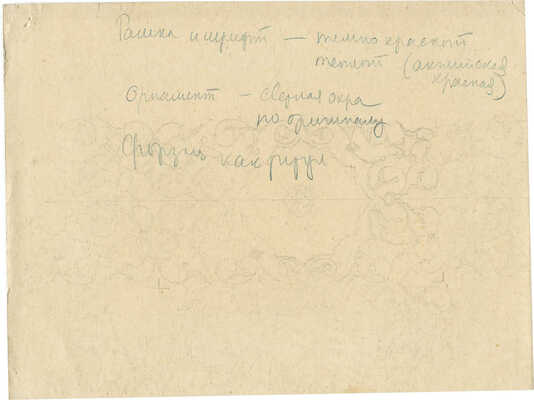 Рамка и шрифт — темно красной
темпой (английская
красная)
Орнамент — светлая охра
по оригиналу
Форзац как